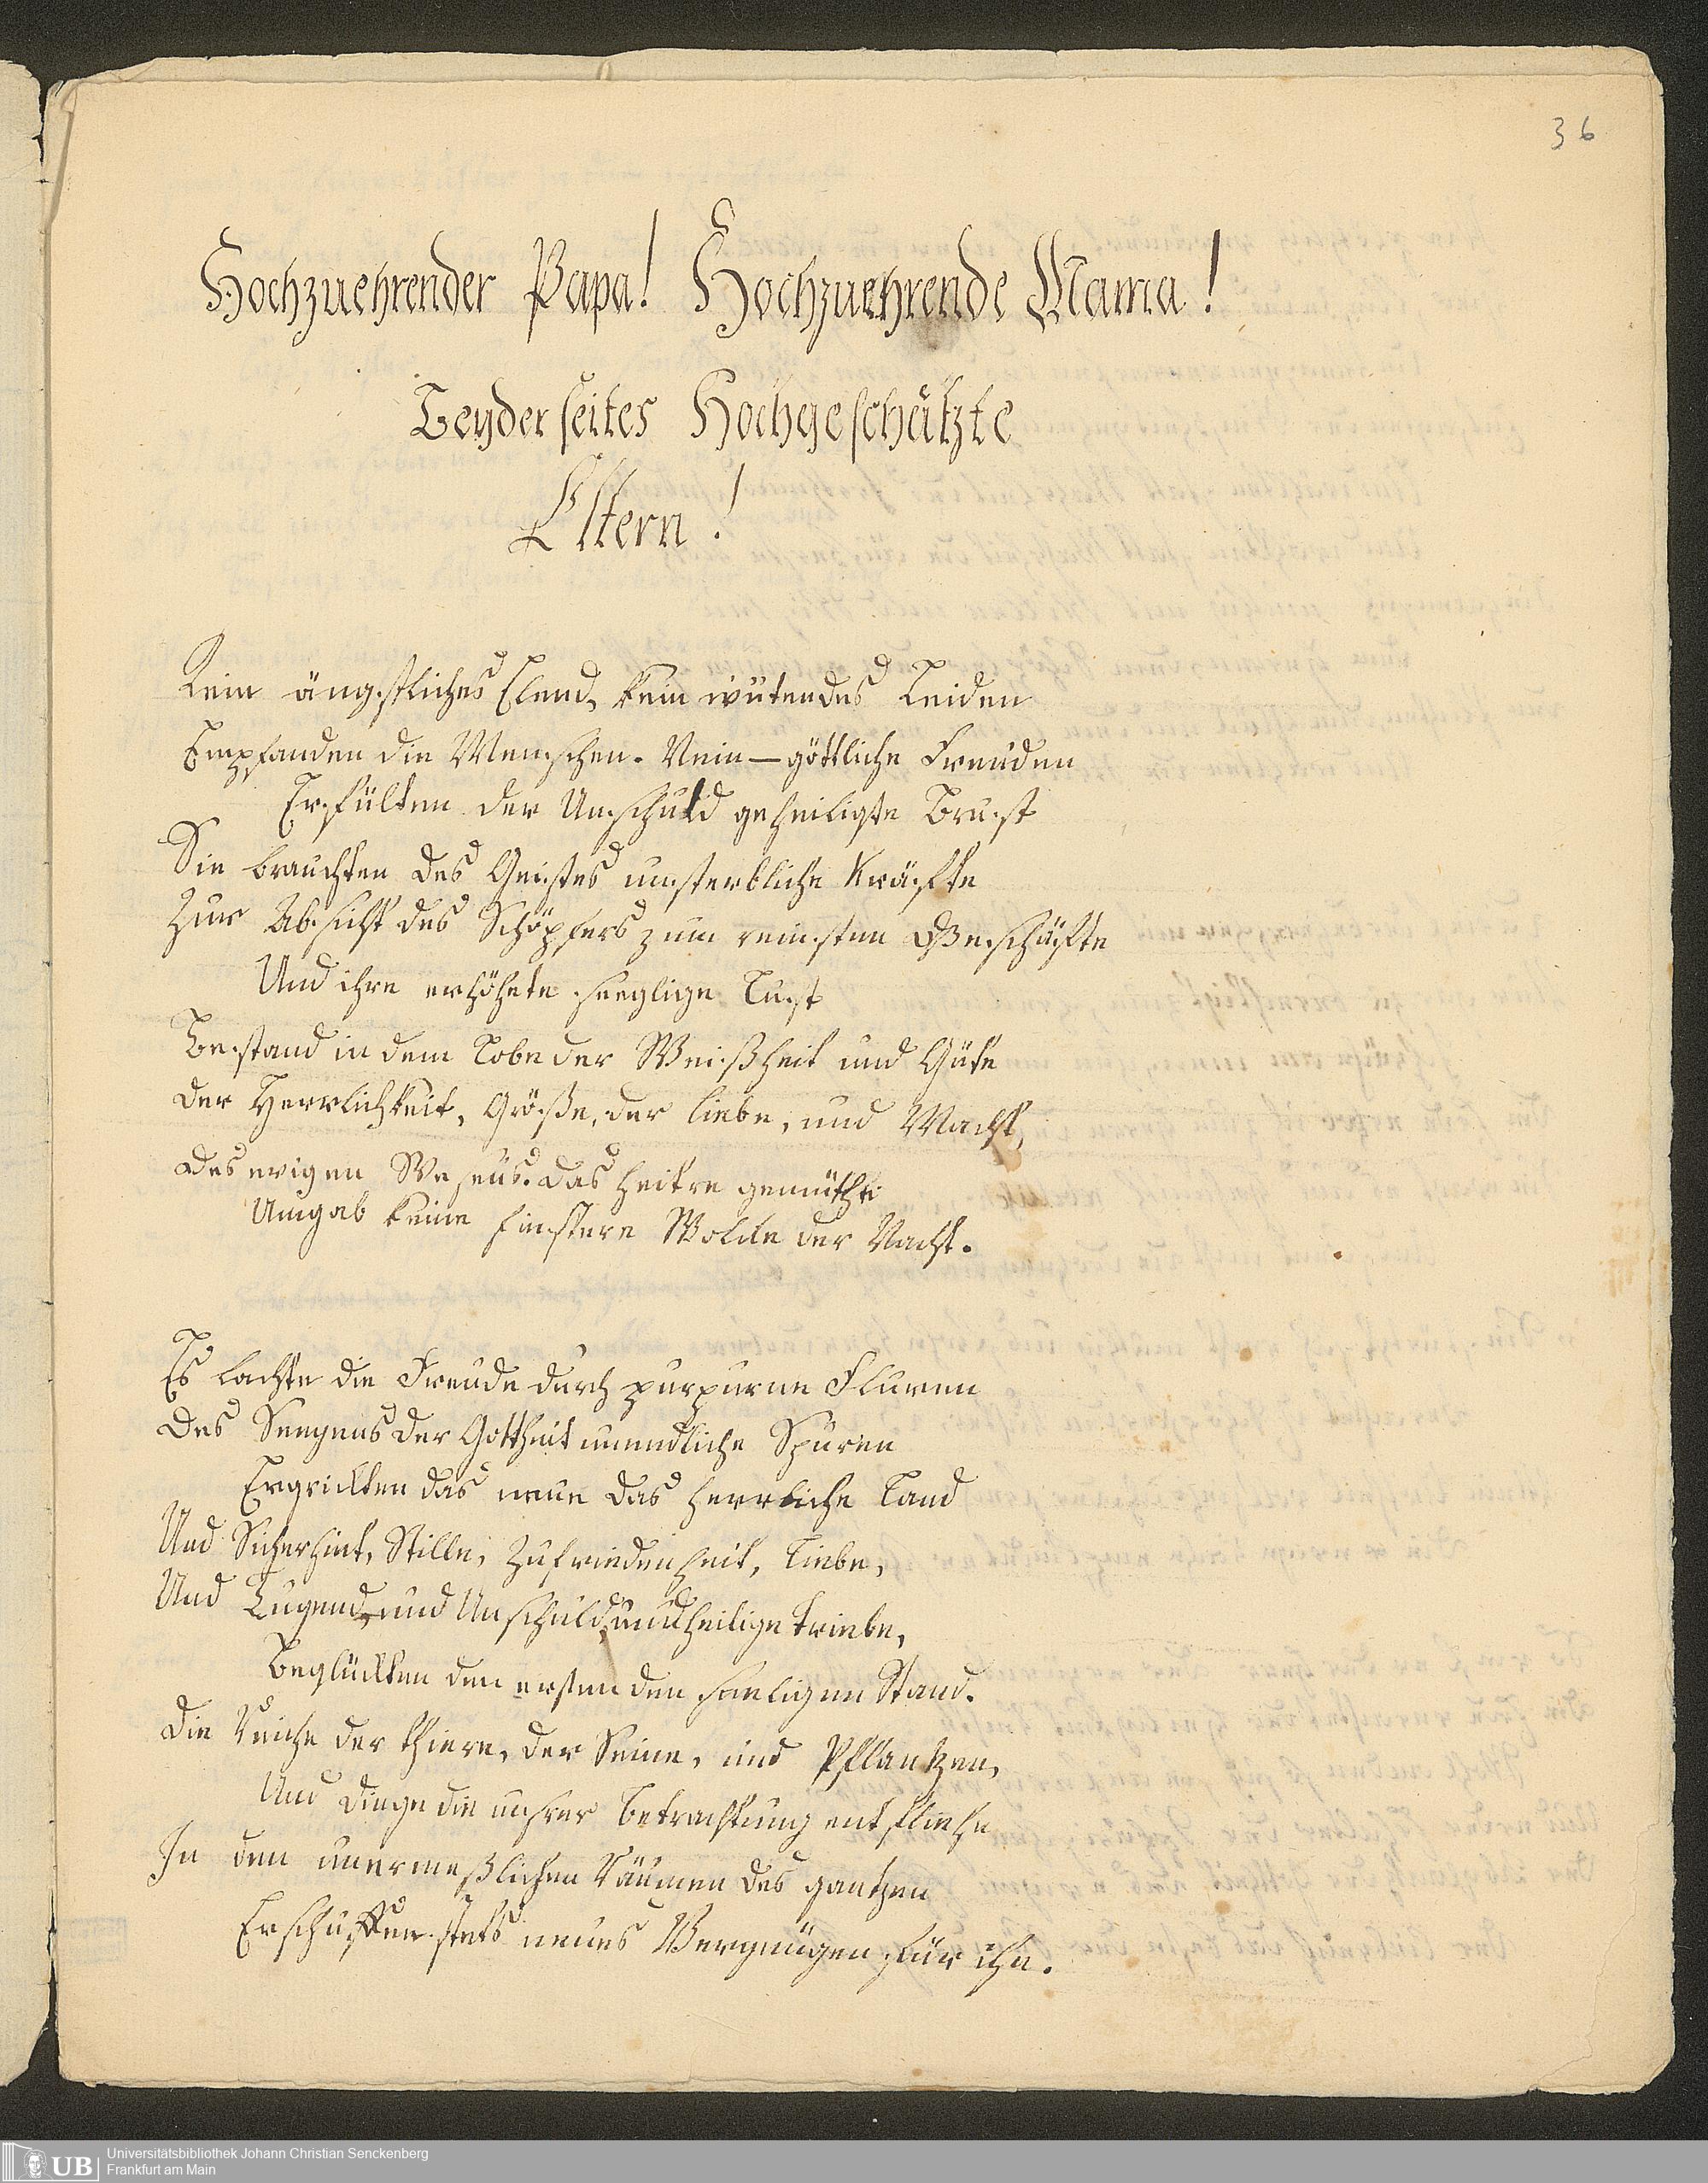 36
Hochzuehrender Papa! Hochzuehrende Mama!
Beyderseites Hochgeschätzte
Eltern!
Kein ängstliches Elend, kein wütendes Leiden
Empfanden die Menschen. Nein—göttliche Freuden
Erfülten der Unschuld geheiligte Brust
Sie brauchten des Geistes unsterbliche Kräfte
Zur Absicht des Schöpfers zum reinsten Geschäfte
Und ihre erhöhete seeglige Lust
Bestand in dem Lobe der Weißheit und Güte
der Herrlichkeit, Größe, der liebe, und Macht,
des ewigen Wesens. das heitre gemüthe
Umgab keine finstere Wolcke der Nacht.
Es lachte die Freude durch purpurne Fluren
des Seegens der Gottheit unendliche Spuren
Ergrickten das neue das herrliche Land
Und Sicherheit, Stille, Zufriedenheit, Liebe,
Und Tugend, und Unschuld, und heilige triebe,
Beglückten den ersten den seeligen Stand.
Die Reiche der thiere, der Steine, und Pflantzen,
Und dinge die unsrer betrachtung entfliehn
In den unermeßlichen Räumen des gantzen
Erschuffen stets neues Vergnügen für ihn.
UB Universitätsbibliothek Johann Christian Senckenberg
Frankfurt am Main